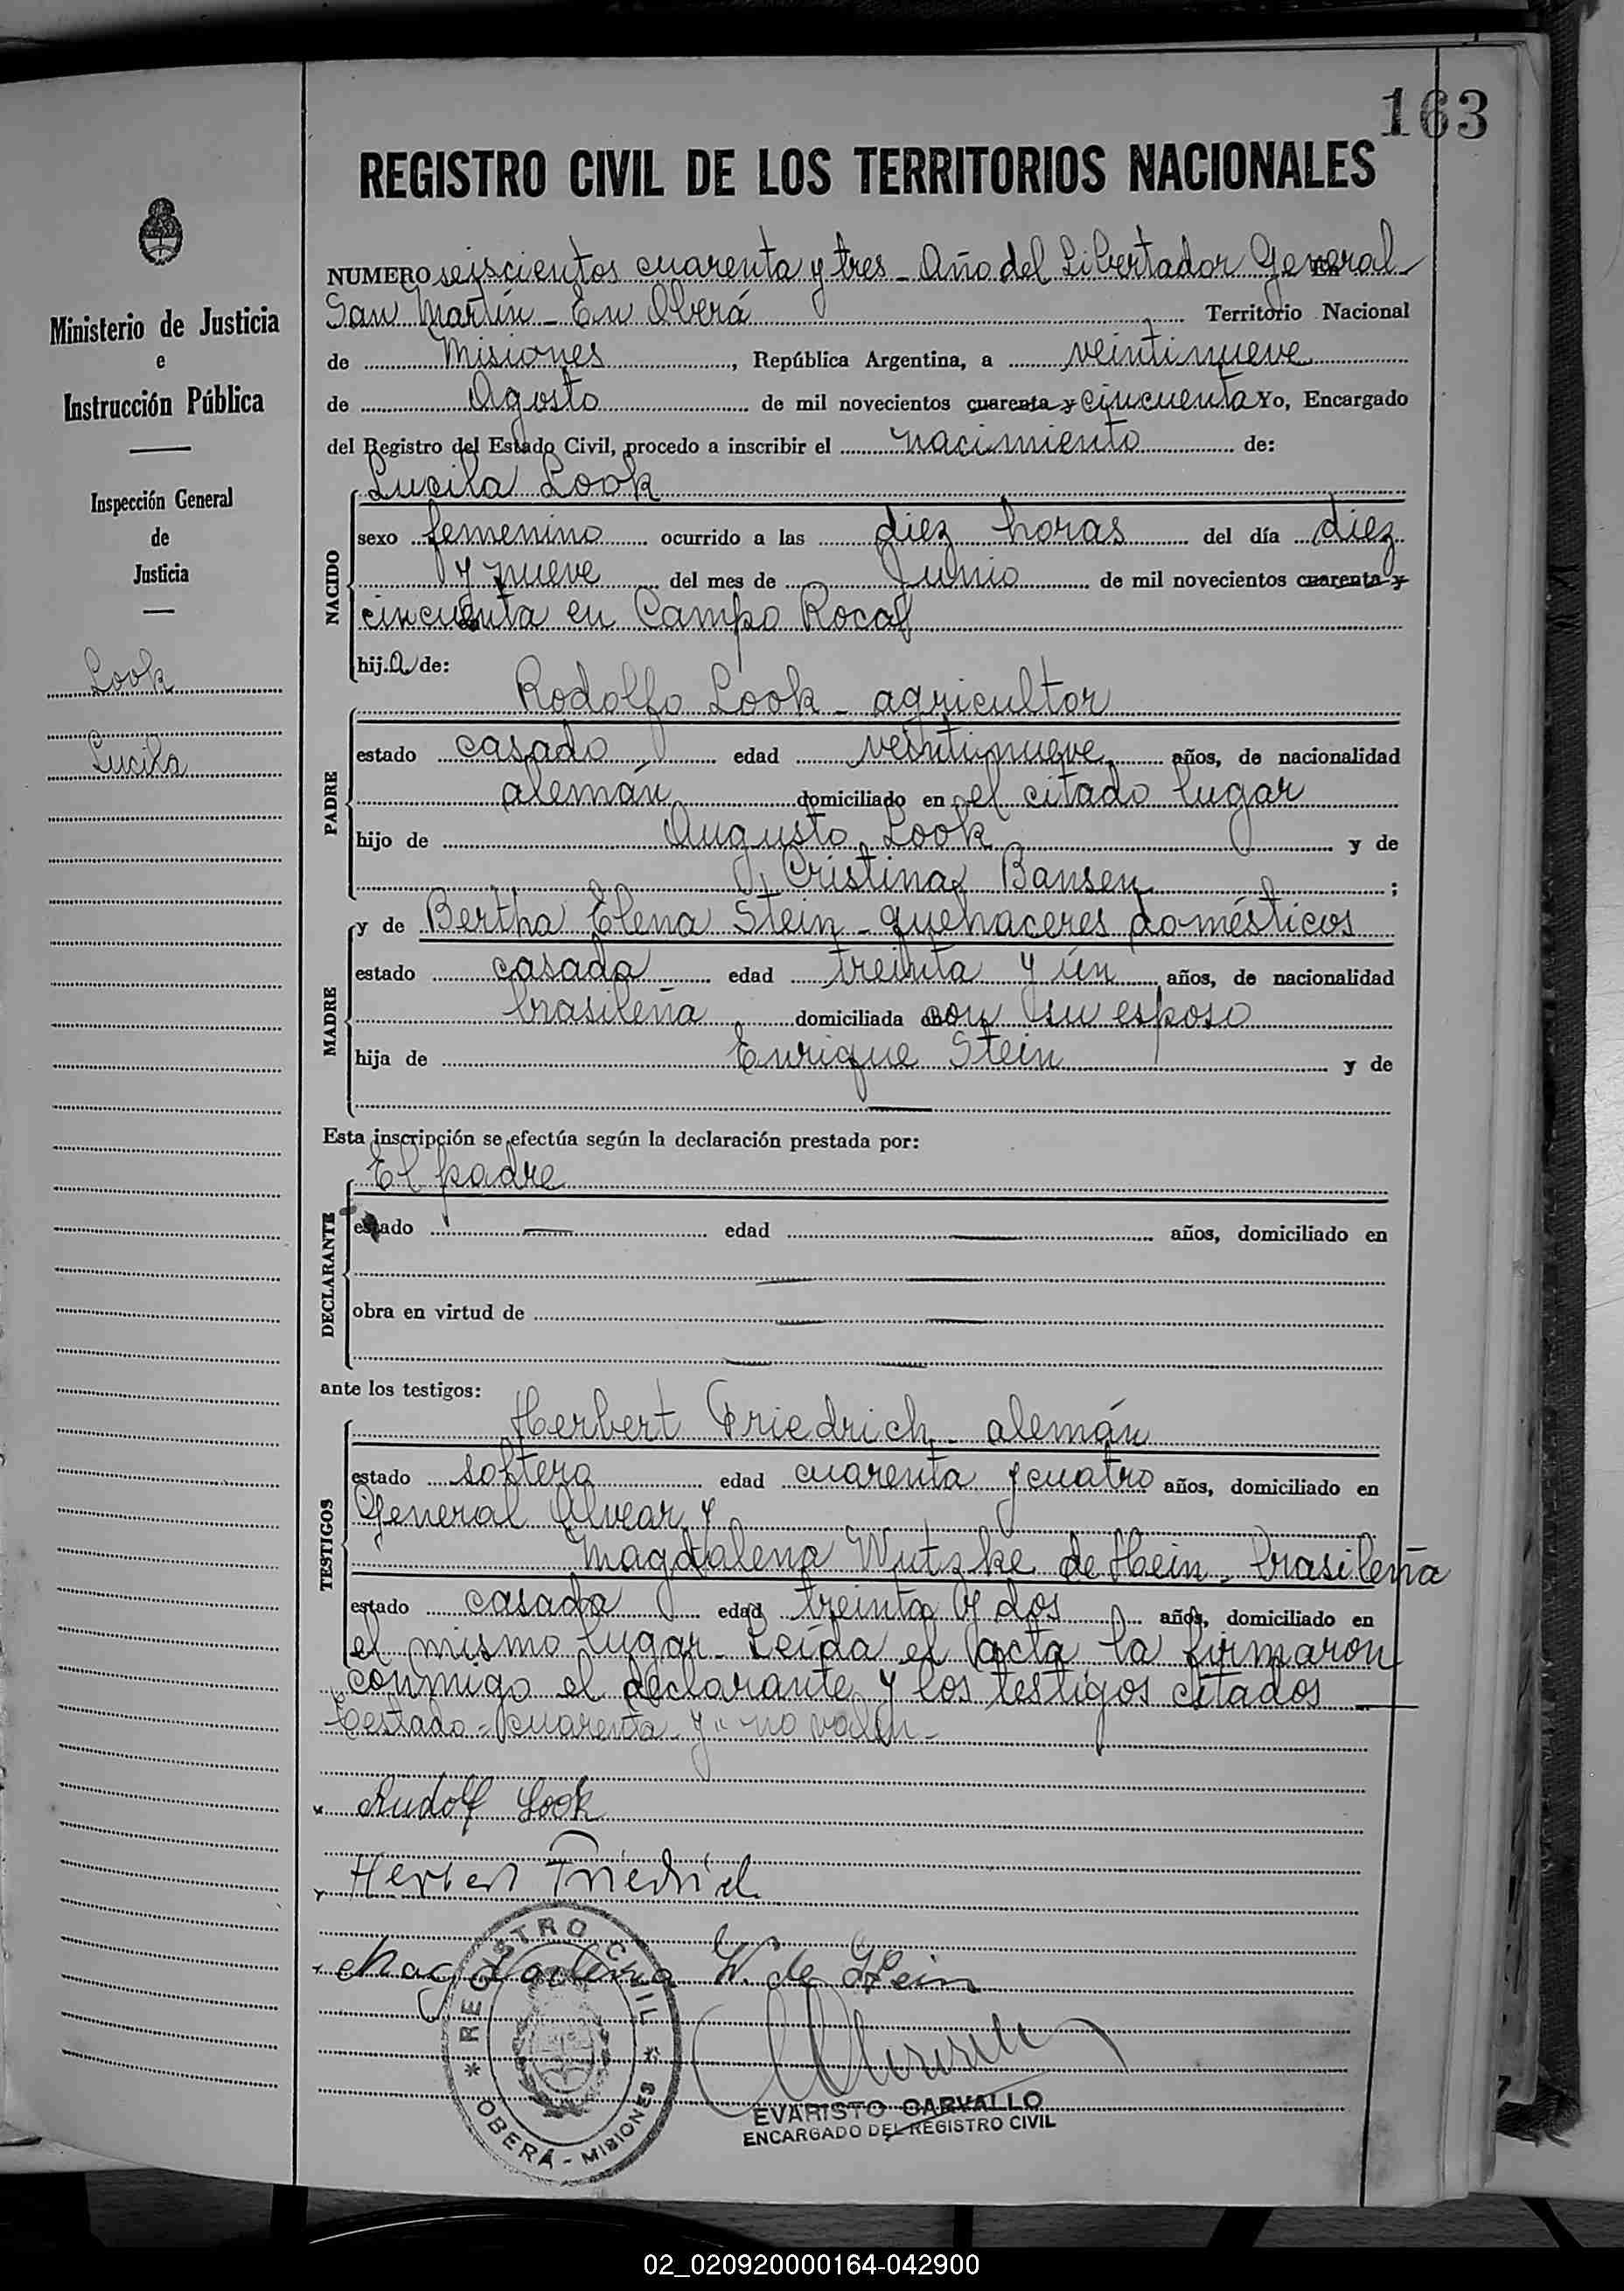 163
REGISTRO CIVIL DE LOS TERRITORIOS NACIONALES
Ministerio de Justicia
e
Instrucción Pública
Inspección General
de
Justicia
Look
Lucila
NUMERO seiscientos cuarenta y tres - Año del Libertador General
San Martín - En Oberá Territorio Nacional
de Misiones, República Argentina, a veintinueve
de Agosto de mil novecientos cuarenta y cincuenta Yo, Encargado
del Registro del Estado Civil, procedo a inscribir el nacimiento de:
Lucila Look
NACIDO
sexo femenino ocurrido a las diez horas del día diez
y nueve del mes de Junio de mil novecientos cuarenta y
cincuenta en Campo Roca
hija de:
Rodolfo Look - agricultor
PADRE
estado casado edad veintinueve años, de nacionalidad
alemán domiciliado en el citado lugar
hijo de Augusto Look y de
Cristina Bansen ;
y de Bertha Elena Stein - quehaceres domésticos
MADRE
estado casada edad treinta y ún años, de nacionalidad
brasileña domiciliada con su esposo
hija de Enrique Stein y de
Esta inscripción se efectúa según la declaración prestada por:
El padre
DECLARANTE
estado edad años, domiciliado en
obra en virtud de
ante los testigos:
Herbert Friedrich - alemán
TESTIGOS
estado soltero edad cuarenta y cuatro años, domiciliado en
General Alvear y
Magdalena Wutzke de Hein - brasileña
estado casada edad treinta y dos años, domiciliado en
el mismo lugar - Leída el acta la firmaron
conmigo el declarante y los testigos citados
Testado - "cuarenta y" no valen -
Rudolf Look
Herbert Friedrich
Magdalena W. de Hein
REGISTRO CIVIL
* OBERÁ - MISIONES *
EVARISTO CARVALLO
ENCARGADO DEL REGISTRO CIVIL
02_020920000164-042900